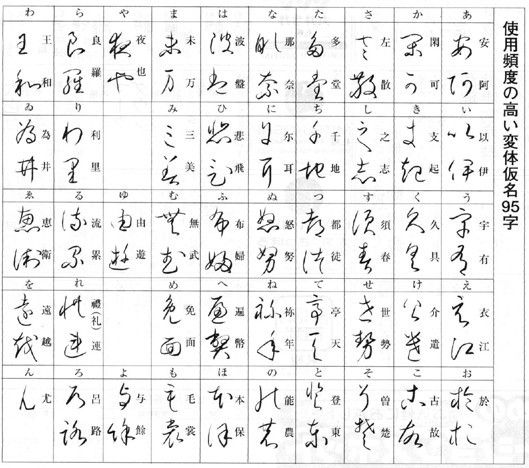 使用頻度の高い変体仮名95字
あ 安 阿
か 閑 可
さ 左 散
た 多 堂
な 那 奈
は 波 盤
ま 未 万
や 夜 也
ら 良 羅
わ 王 和
い 以 伊
き 支 起
し 之 志
ち 千 地
に 尓 耳
ひ 悲 飛
み 三 美
り 利 里
ゐ 為 井
う 宇 有
く 久 具
す 須 春
つ 都 徒
ぬ 怒 努
ふ 布 婦
む 無 武
ゆ 由 遊
る 流 累
ゑ 恵 衛
え 衣 江
け 介 遣
せ 世 勢
て 亭 天
ね 祢 年
へ 遍 幣
め 免 面
れ 禮(礼) 連
を 遠 越
お 於
こ 古 故
そ 曽 楚
と 登 東
の 能 農
ほ 本 保
も 毛 裳
よ 与 餘
ろ 呂 路
ん 尤